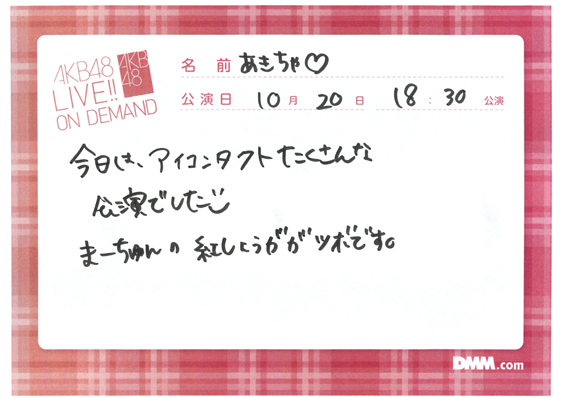 AKB48
LIVE!!
ON DEMAND
AKB
48
名前 あきちゃ♡
公演日 10月 20日 18:30 公演
今日は、アイコンタクトたくさんな
公演でした
まーちゅんの紅しょうががツボです。
DMM.com